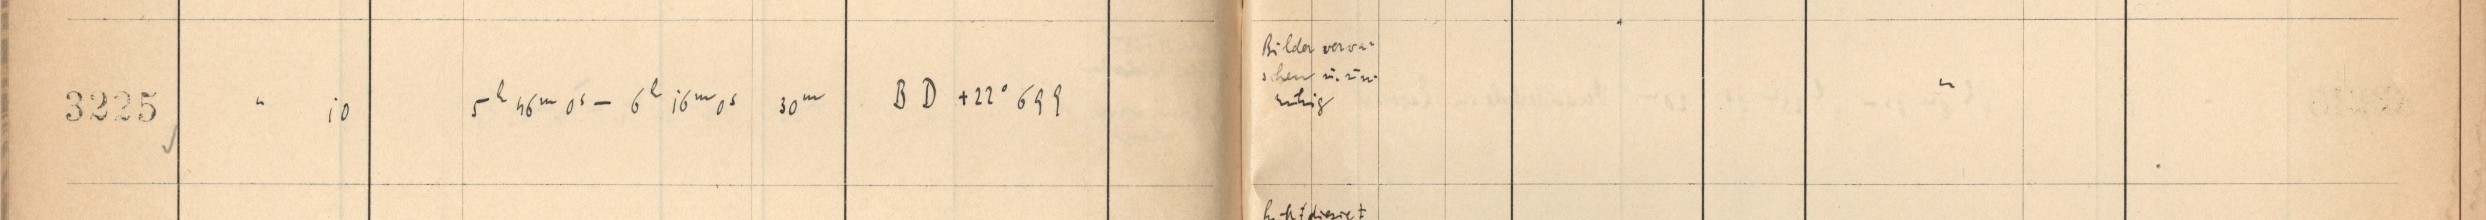 3225 " 10 5h 46m 0s – 6h 16m 0s 30m BD +22° 699 "
Bilder verwa-
schen u. un-
ruhig